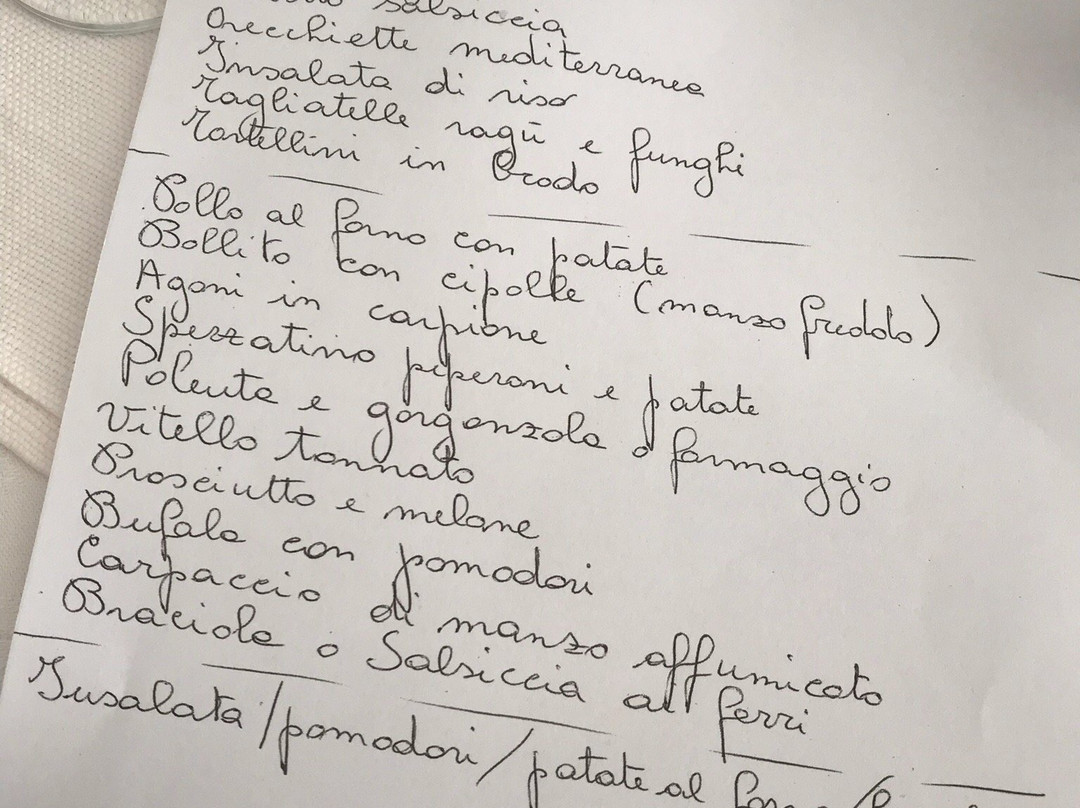 salsiccia
Orecchiette mediterranea
Insalata di riso
Tagliatelle ragū e funghi
Tortellini in Brodo
Pollo al forno con patate
Bollito con cipolle (manzo freddo)
Agoni in carpione
Spezzatino piperoni e patate
Polenta e gorgonzola o formaggio
Vitello tonnato
Prosciutto e melone
Bufala con pomodori
Carpaccio di manzo affumicato
Braciola o Salsiccia ai ferri
Insalata/pomodori/patate al